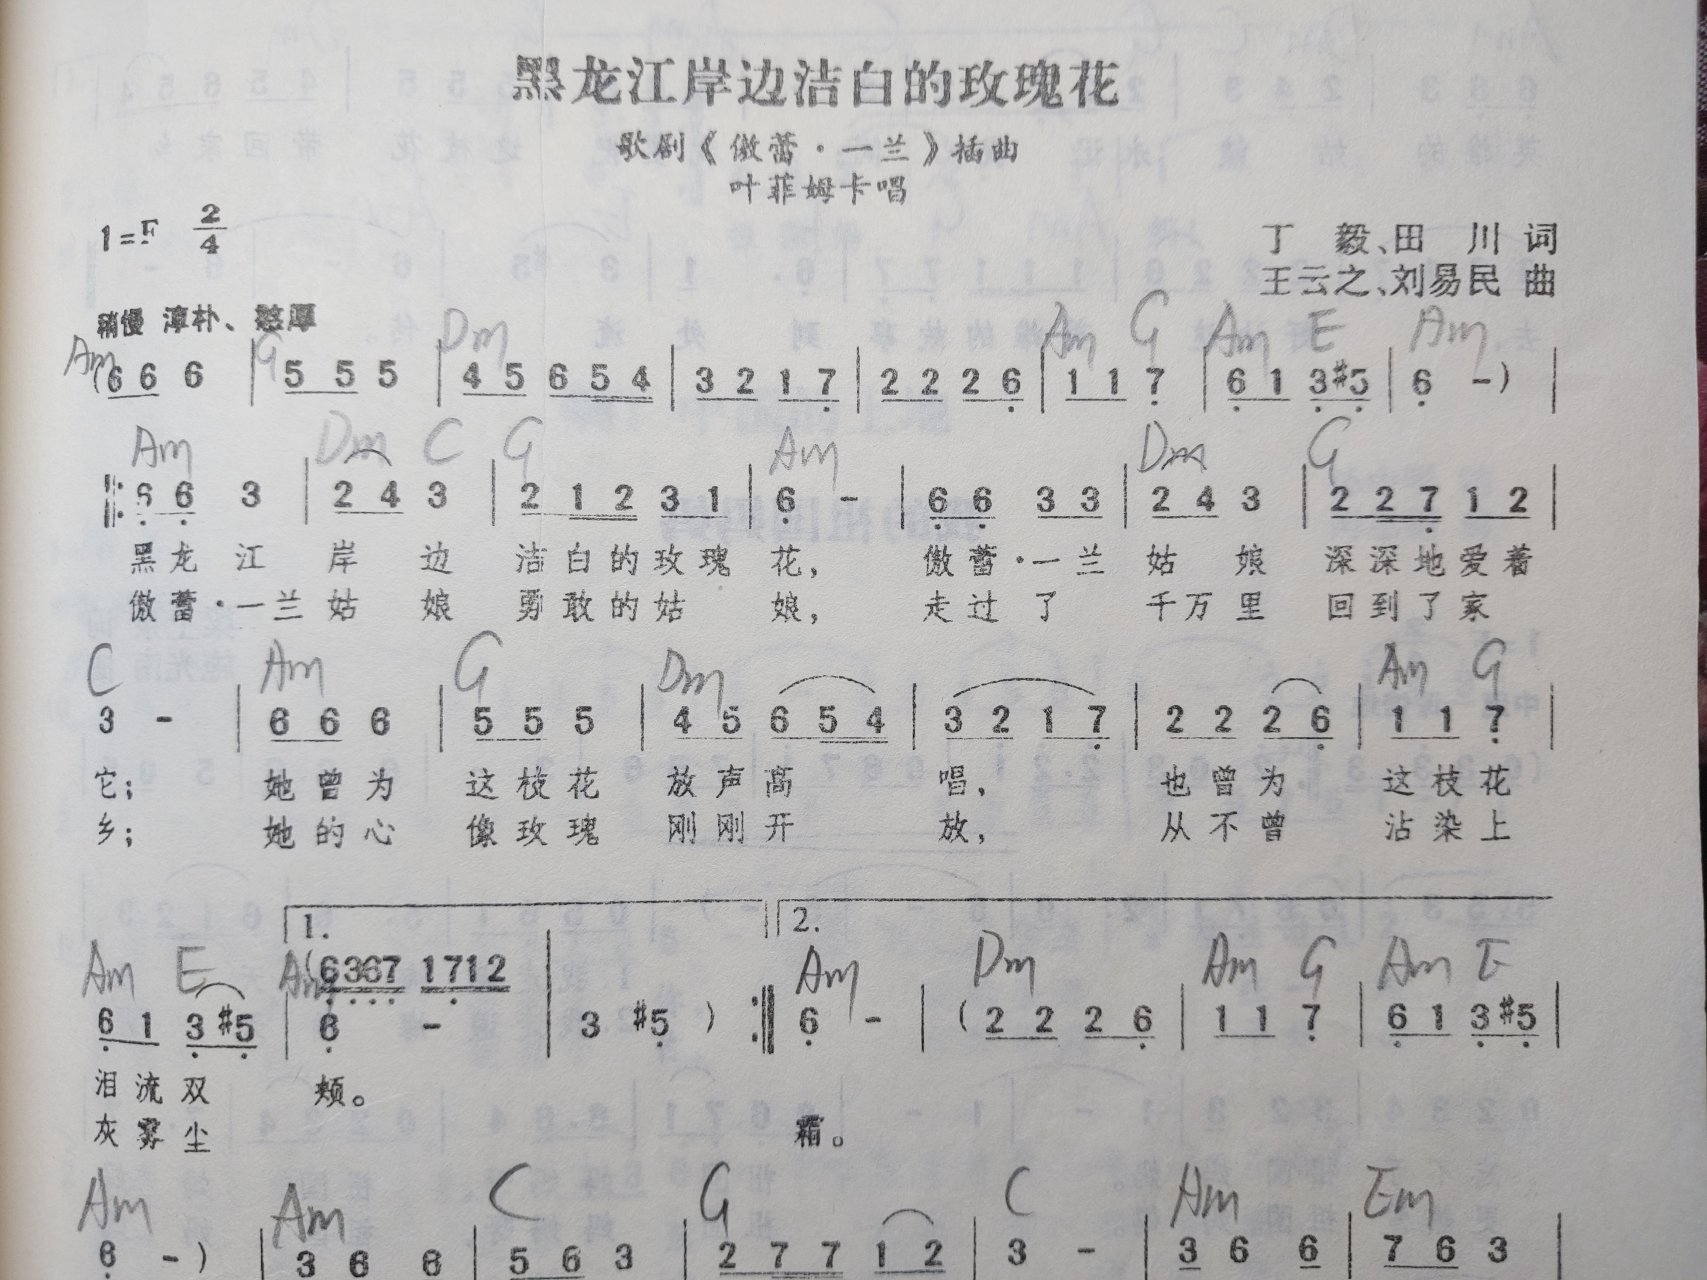 黑龙江岸边洁白的玫瑰花
歌剧《傲蕾·一兰》插曲
叶菲姆卡唱
1=F 2/4
丁 毅、田 川 词
王云之、刘易民 曲
稍慢 淳朴、憨厚
Am G Dm Am G Am E Am
(6 6 6 | 5 5 5 | 4 5 6 5 4 | 3 2 1 7 | 2 2 2 6 | 1 1 7 | 6 1 3 #5 | 6 - ) |
Am Dm C G Am Dm G
6 6 3 | 2 4 3 | 2 1 2 3 1 | 6 - | 6 6 3 3 | 2 4 3 | 2 2 7 1 2 |
黑龙江 岸 边 洁白的玫瑰 花, 傲蕾·一兰 姑 娘 深深地爱着
傲蕾·一兰 姑 娘 勇敢的姑 娘, 走过了 千万里 回到了家
C Am G Dm Am G
3 - | 6 6 6 | 5 5 5 | 4 5 6 5 4 | 3 2 1 7 | 2 2 2 6 | 1 1 7 |
它; 她曾为 这枝花 放声高 唱, 也曾为 这枝花
乡; 她的心 像玫瑰 刚刚开 放, 从不曾 沾染上
1. 2.
Am E Am (6367 1712 Am Dm Am G Am E
6 1 3 #5 | 6 - | 3 #5 ) :| 6 - | (2 2 2 6 | 1 1 7 | 6 1 3 #5 |
泪流双 颊。
灰雾尘 霜。
Am Am C G C Am Em
6 - ) | 3 6 6 | 5 6 3 | 2 7 7 1 2 | 3 - | 3 6 6 | 7 6 3 |